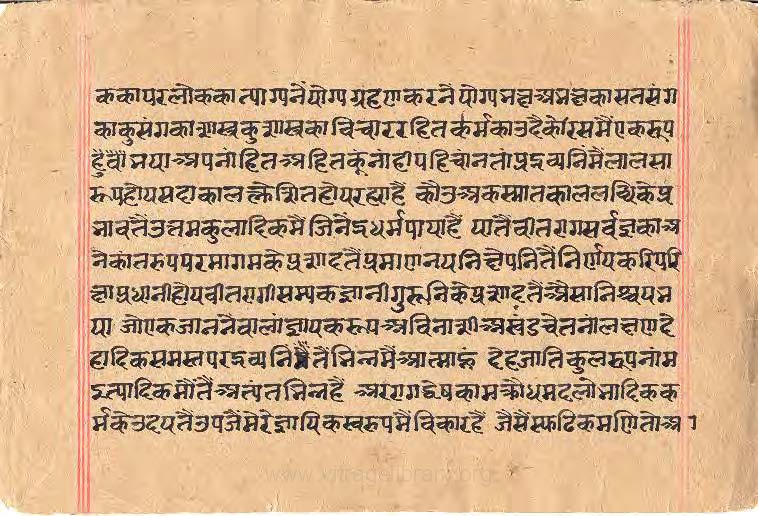 क का परलोक का त्याग्यनै योग्य ग्रहण करनै योग्य भक्ष अभक्ष का सतसंग
का कुसंग का शास्त्र कुशास्त्र का विचार रहित कर्म का उदै के रस मैं एक रूप
हुवा भया अपनां हित अहित कूं नांही पहिचांनतां परद्रव्यनि मैं लालसा
रूप होय सदा काल क्लेशित होय रह्या है कौउ अकस्मात काललब्धि के प्र
भाव तै उत्तम कुलादिक मैं जिनेंद्र धर्म पाया है यातै वीतराग सर्वज्ञ का अ
नेकांतरूप परमागम के प्रशाद तैं प्रमाण नय निक्षेपनि तैं निर्णय करि परि
क्षा प्रधानी होय वीतरागी सम्यकज्ञानी गुरुनि के प्रशाद तै औसा निश्चय भ
या जो एक जाननै वाला ज्ञायकरूप अविनाशी अखंड चेतनां लक्षण दे
हादिक समस्त परद्रव्यनि तैं भिन्न मैं आत्मा हूं देह जाति कुल रूप नांम
इत्यादिक मौ तै अत्यंत भिन्न है अर राग द्वेष काम क्रोध मद लोभादिक क
र्म के उदय तै उपजै मेरे ज्ञायिक स्वरूप मैं विकार है जैसैं स्फटिकमणि तो आ
www.xitragelibrary.org